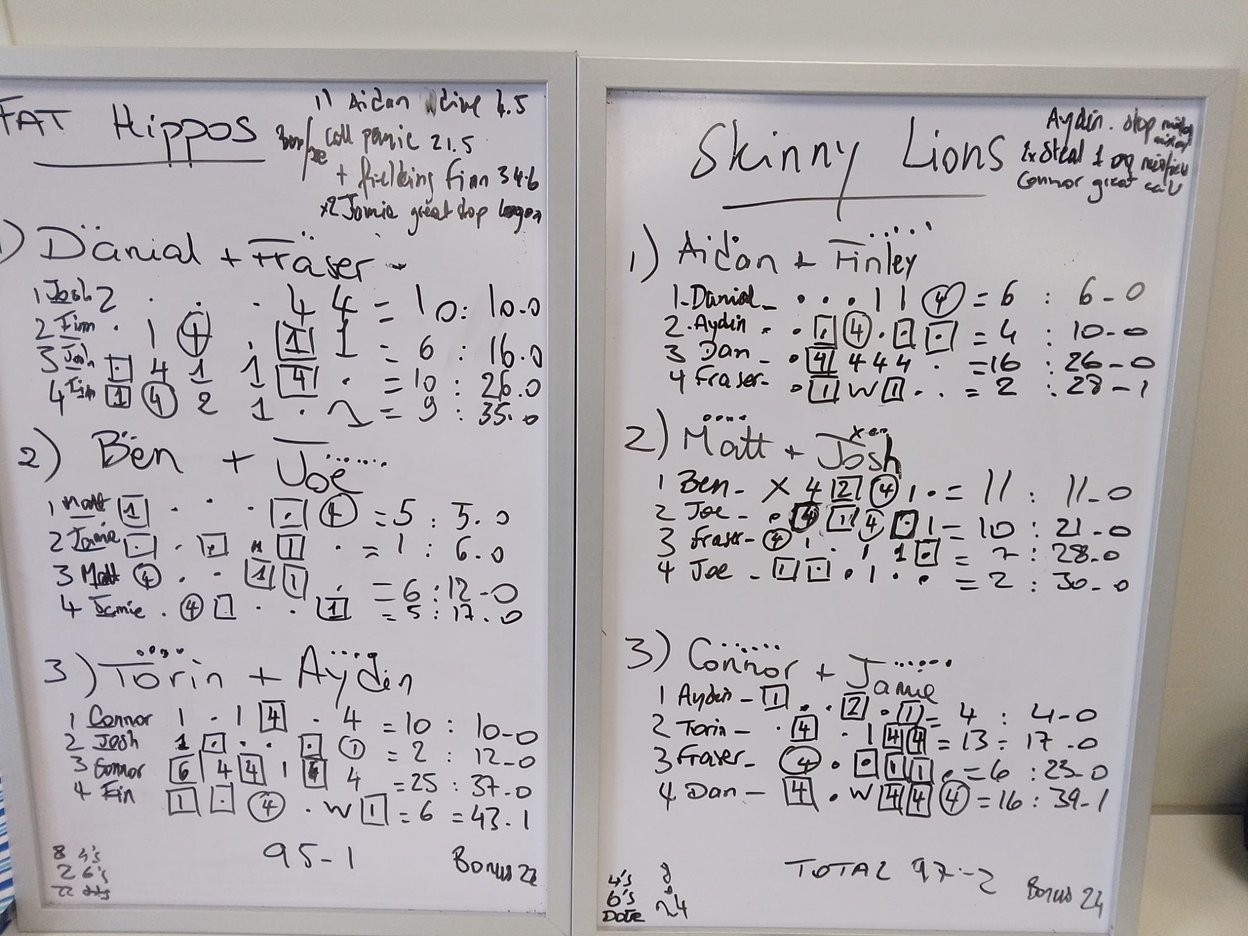 FAT Hippos
1) Aidan dive 4.5
call panic 21.5
+ fielding Finn 34.6
x2 Jamie great stop
1) Danial + Fraser
1 Josh 2 . . . 4 4 = 10 : 10.0
2 Finn . 1 4 . 1 1 = 6 : 16.0
3 Josh . 4 1 1 4 . = 10 : 26.0
4 Finn 1 4 2 1 . 2 = 9 : 35.0
2) Ben + Joe
1 Matt 1 . . . . 4 = 5 : 5.0
2 Jamie . . . . 1 . = 1 : 6.0
3 Matt 4 . . 1 1 . = 6 : 12-0
4 Jamie . 4 . . . 1 = 5 : 17.0
3) Torin + Aydin
1 Connor 1 . 1 4 . 4 = 10 : 10-0
2 Josh 1 . . . . 1 = 2 : 12-0
3 Connor 6 4 4 1 4 = 25 : 37.0
4 Fin 1 . 4 . W 1 = 6 = 43.1
95-1
Bonus 22
8 4's
2 6's
22
Skinny Lions
Aydin. stop
2x Steal 1 og
Connor great
1) Aidan + Finley
1-Danial- . . . 1 1 4 = 6 : 6-0
2.Aydin . . . 4 . . = 4 : 10-0
3 Dan - . 4 4 4 4 . = 16 : 26-0
4 Fraser- . 1 W 1 . . = 2 : 28-1
2) Matt + Josh
1 Ben- X 4 2 4 1 . = 11 : 11-0
2 Joe - . 4 1 4 . 1 - 10 : 21-0
3 Fraser- 4 1 . 1 1 . = 7 : 28-0
4 Joe - 1 . . 1 . . = 2 : 30-0
3) Connor + Jamie
1 Aydin - 1 . . 2 . 1 - = 4 : 4-0
2 Torin - . 4 . 1 4 4 = 13 : 17-0
3 Fraser- 4 . . 1 1 . = 6 : 23-0
4 Dan - 4 . W 4 4 4 = 16 : 39-1
TOTAL 97-2
Bonus 24
4's 8
6's
Dots 24